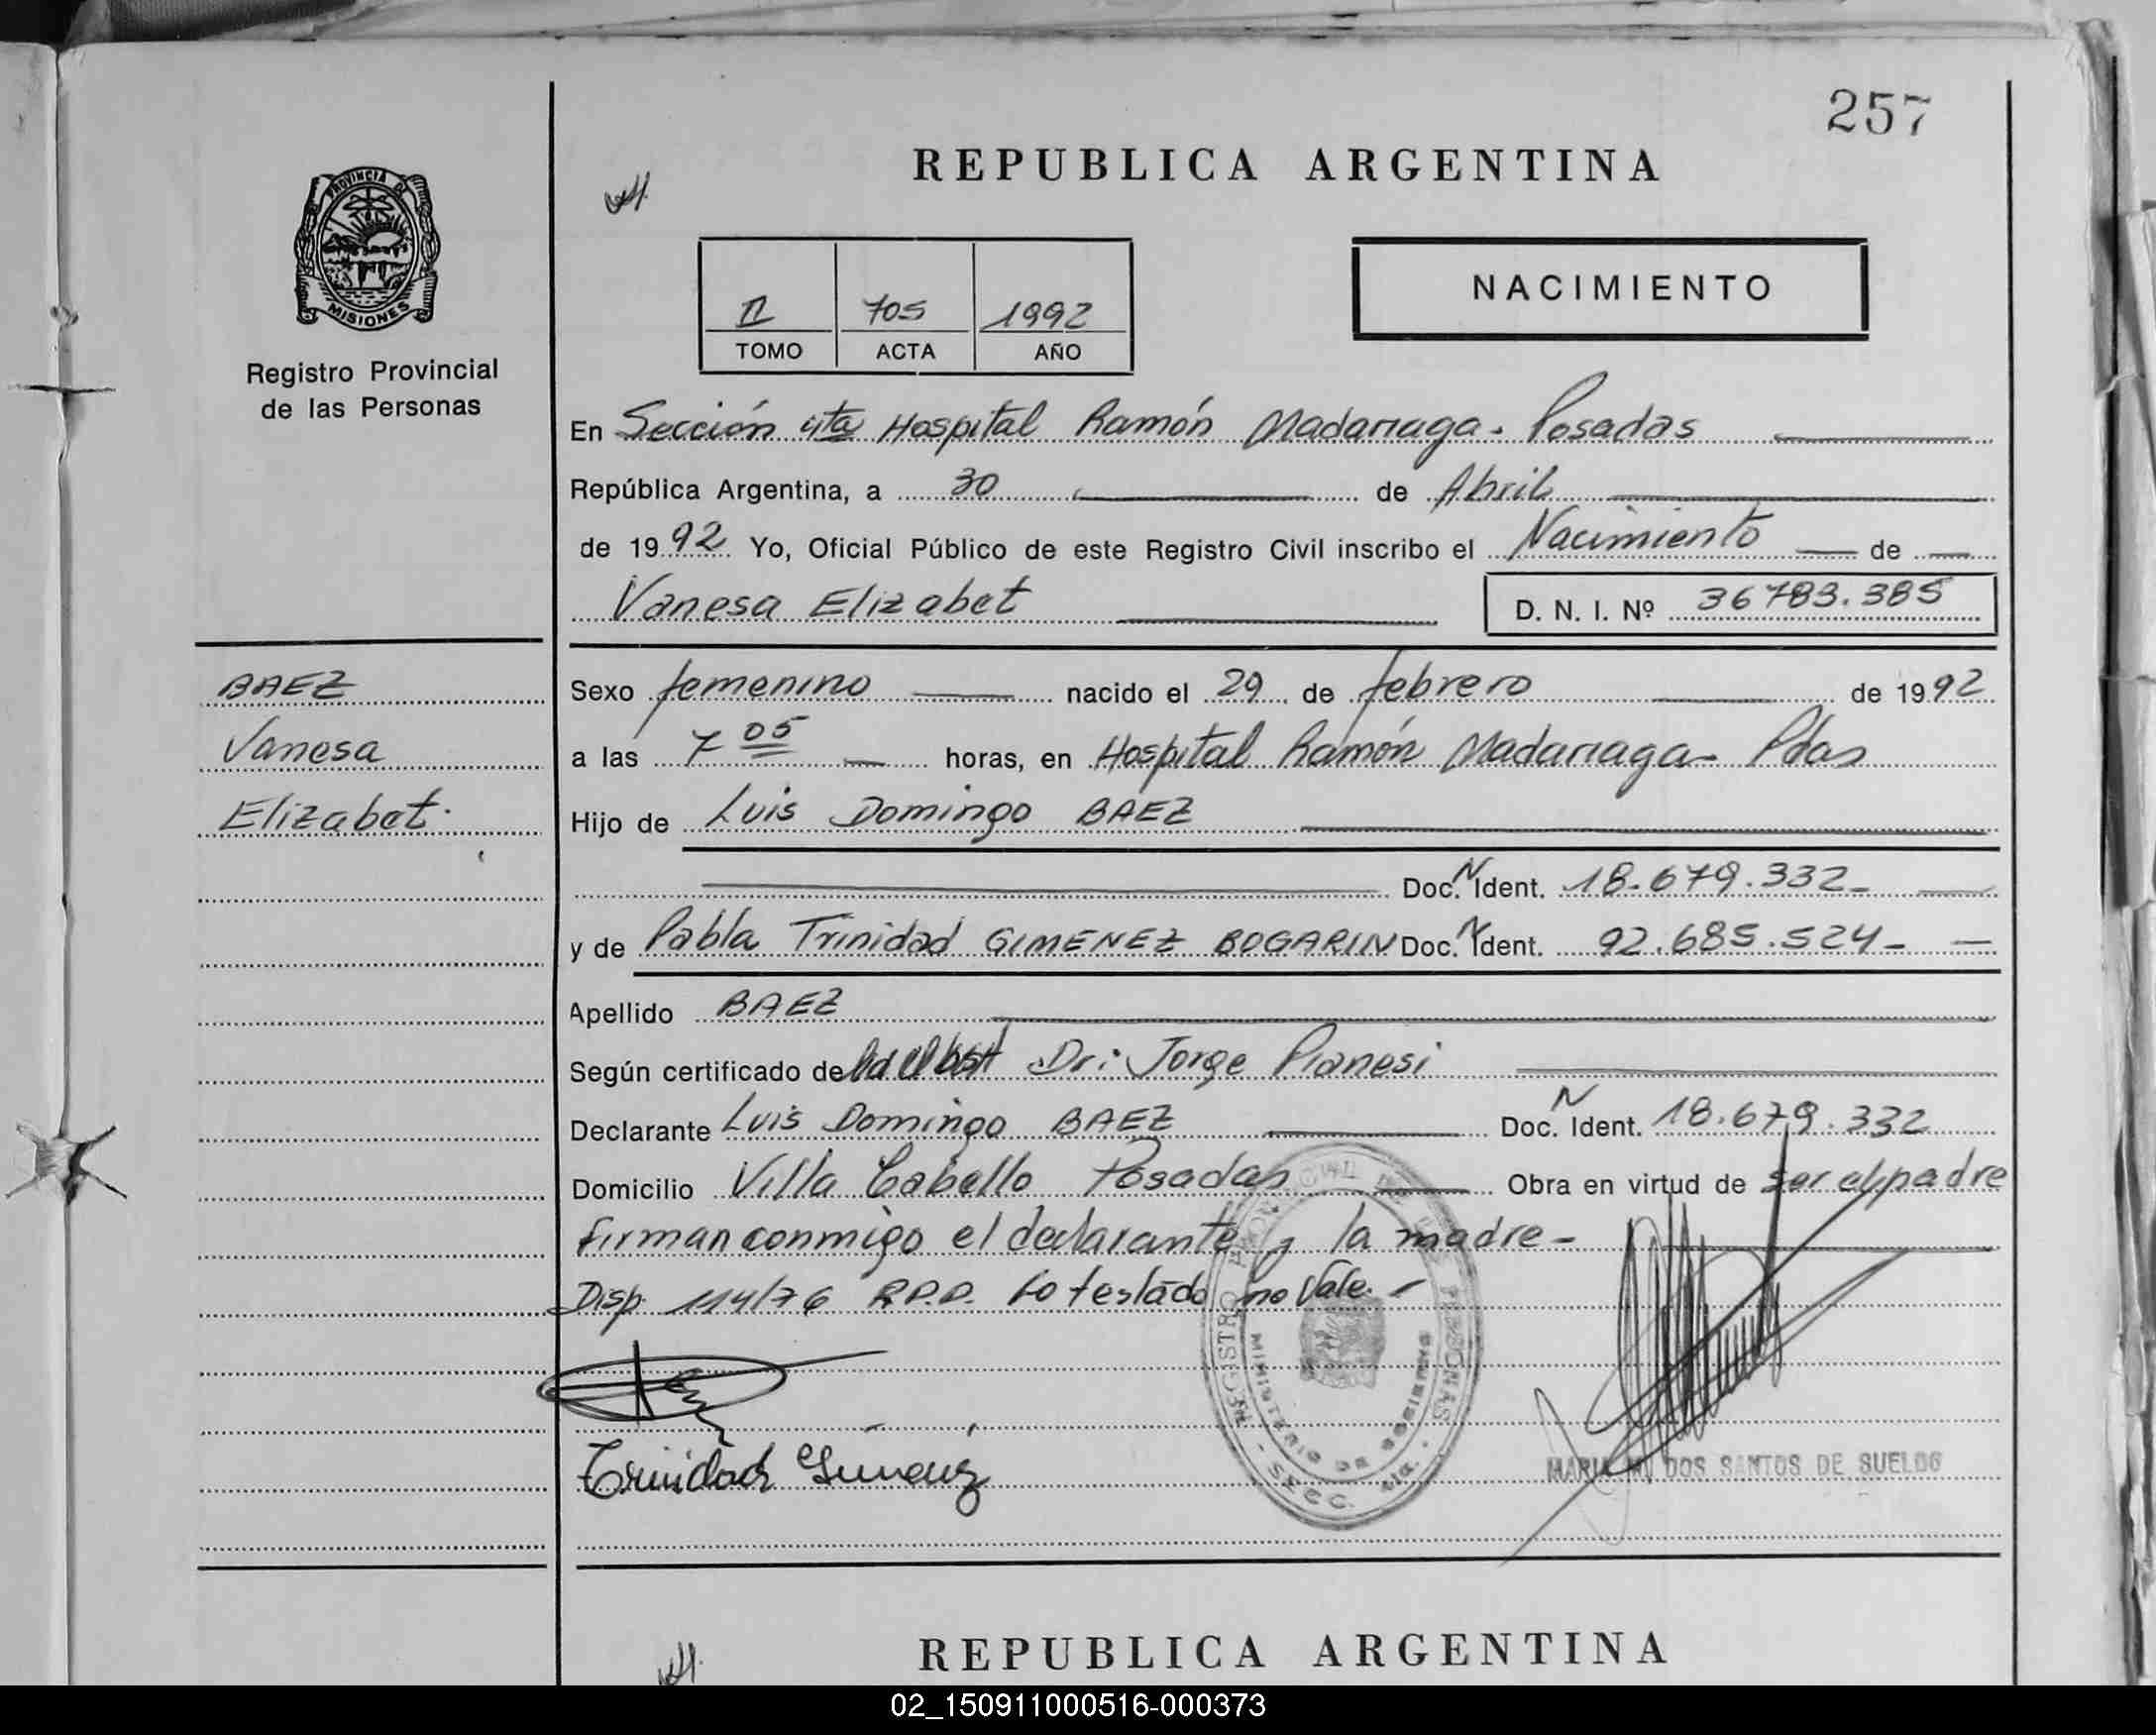 257
REPUBLICA ARGENTINA
PROVINCIA DE
MISIONES
Registro Provincial
de las Personas
II 705 1992
TOMO ACTA AÑO
NACIMIENTO
En Sección 4ta Hospital Ramón Madariaga - Posadas
República Argentina, a 30 de Abril
de 1992 Yo, Oficial Público de este Registro Civil inscribo el Nacimiento de
Vanesa Elizabet D. N. I. Nº 36783.385
BAEZ
Vanesa
Elizabet.
Sexo femenino nacido el 29 de febrero de 1992
a las 7 05 horas, en Hospital Ramón Madariaga - Pdas
Hijo de Luis Domingo BAEZ
Doc. N Ident. 18.679.332-
y de Pabla Trinidad GIMENEZ BOGARIN Doc. N Ident. 92.685.524-
Apellido BAEZ
Según certificado de Dr: Jorge Pianesi
Declarante Luis Domingo BAEZ Doc. N Ident. 18.679.332
Domicilio Villa Cabello Posadas Obra en virtud de ser el padre
firman conmigo el declarante y la madre-
Disp. 114/76 R.P.P. Lo testado no Vale.-
Trinidad Gimenez
MARIA DOS SANTOS DE SUELDO
REPUBLICA ARGENTINA
02_150911000516-000373